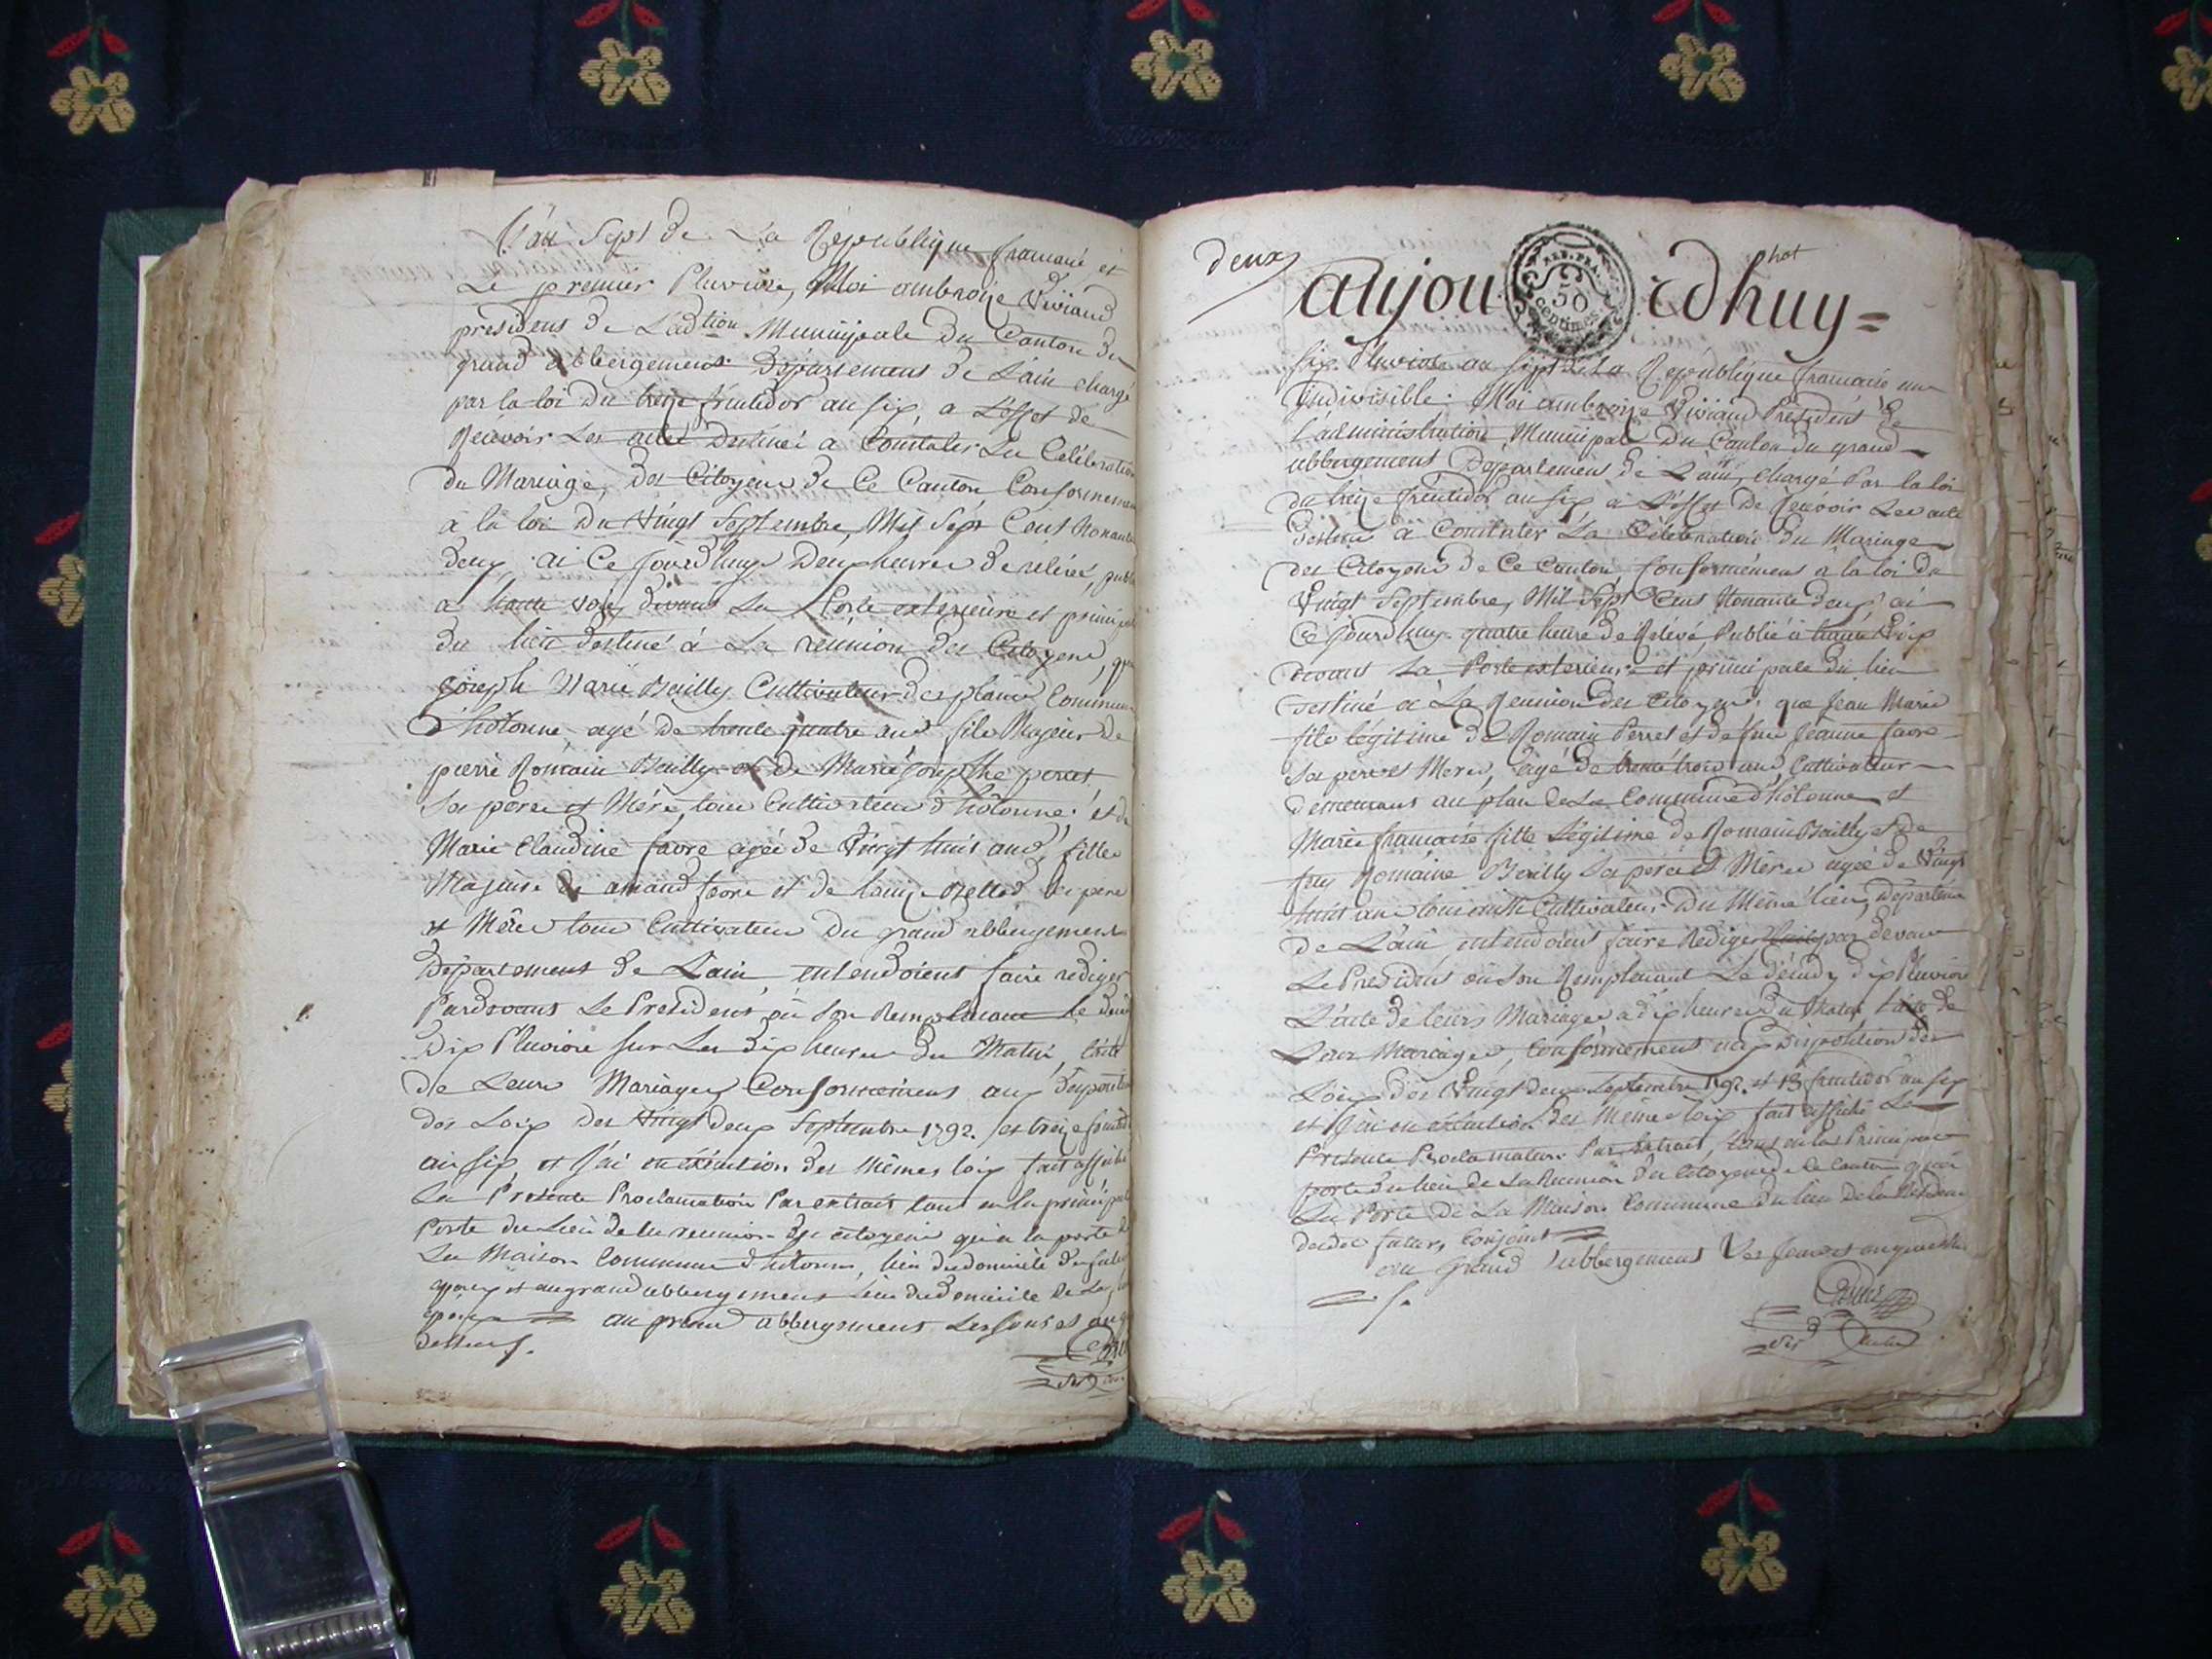 L'an Sept de La République française et
Le premier Pluviose, Moi ambroise Viviand
president de L'adtion Municipale du Canton du
grand abbergement Département de L'ain chargé
par la loi du treize fructidor an six a L'effet de
Recevoir Les actes Destinés a Constater La Celebration
du Mariage, des Citoyens de Ce Canton Conformement
a la loi du Vingt Septembre, Mil Sept Cent Nonante
deux, ai Ce Jourdhuy Deux heures de relevé, publié
a haute voix devant La Porte exterieure et principale
du lieu destiné à La réunion des Citoyens, que
Joseph Marie Bailly Cultivateur des plans, Commune
d'hotonne, agé de trente quatre ans fils Majeur de
pierre Romain Bailly et de Marie Josephe perret
Ses pere et Mère tous Cultivateurs d'hotonne. et de
Marie Claudine favre agée de Vingt huit ans, fille
Majeure de amand favre et de Louise Ses pere
et Mère tous Cultivateurs du grand abbergement
Département de L'ain entendoient faire rediger
Pardevant Le President ou Son Remplacant le
dix Pluviose Sur Les dix heures du Matin, L'acte
de Leurs Mariages Conformement aux
des Loix des Vingt deux Septembre 1792. et treize fructidor
an six, et J'ai en exécution des Mêmes loix fait affiché
La Présente Proclamation Par extrait tant en la principale
Porte du Lieu de la reunion des citoyens qu'a la porte de
La Maison Commune d'hotonne, lieu du domicile du futur
epoux et au grand abbergement lieu du domicile de La
epouse au grand abbergement Les Jour et an
dessus
deux
hot
REP. FRA.
50
centimes
aujourdhuy
six Pluviose an sept de La République française une
Indivisible. Moi ambroise Viviand President de
L'administration Municipale du Canton du grand
abbergement Département de L'ain, chargé Par la loi
du treize fructidor an six a L'effet de Recevoir Les actes
destinés a Constater La Célébration du Mariage
des Citoyens de Ce Canton Conformément a la loi du
Vingt Septembre, Mil Sept Cent Nonante deux ai
Ce Jourdhuy quatre heure de Relevé, Publié a haute Voix
devant La Porte exterieure et principale du lieu
destiné à La Reunion des Citoyens, que Jean Marie
fils légitime de Romain Perret et de feue Jeanne favre
Ses peres et Mere, agé de trente trois ans Cultivateur
demeurant au plan de La Commune d'hotonne et
Marie francoise fille Légitime de Romain Bailly et de
feue Romaine Bailly Ses peres et Mère agée de Vingt
huit ans Cultivateur du Même lieu, Département
de L'ain, entendoient faire Rediger par devant
Le President ou Son Remplacant Le décady dix Pluviose
L'acte de leurs Mariages a dix heures du Matin, L'acte de
Leur Mariage, Conformément aux Dispositions des
Loix des Vingt deux Septembre 1792. et 13 fructidor an six
et J'ai en exécution des Mêmes loix fait affiché La
Présente Proclamation Par extrait, tant en la Principale
porte du lieu de La Reunion des Citoyens de Ce Canton qu'a
La Porte de La Maison Commune du lieu de la Residence
desdits futurs Conjoints
au Grand abbergement Les Jour et an que dessus